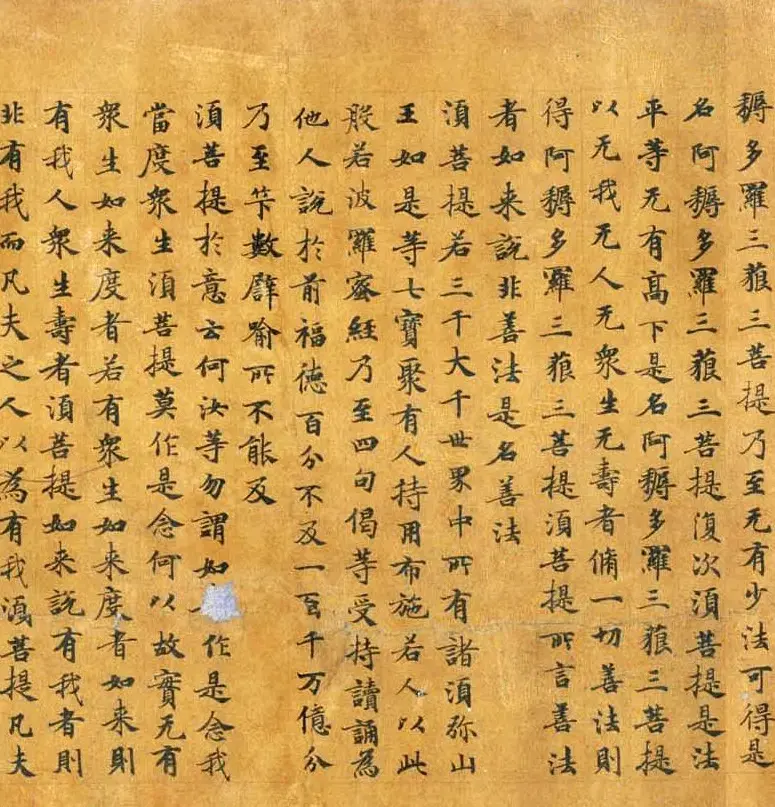 耨多羅三藐三菩提乃至无有少法可得是
名阿耨多羅三藐三菩提復次湏菩提是法
平等无有髙下是名阿耨多羅三藐三菩提
以无我无人无衆生无壽者脩一切善法則
得阿耨多羅三藐三菩提湏菩提所言善法
者如来說非善法是名善法
湏菩提若三千大千世界中所有諸湏弥山
王如是等七寶聚有人持用布施若人以此
般若波羅蜜經乃至四句偈等受持讀誦為
他人說於前福德百分不及一百千万億分
乃至筭數譬喻所不能及
湏菩提於意云何汝等勿謂如作是念我
當度衆生湏菩提莫作是念何以故實无有
衆生如来度者若有衆生如来度者如来則
有我人衆生壽者湏菩提如来說有我者則
非有我而凡夫之人以為有我湏菩提凡夫